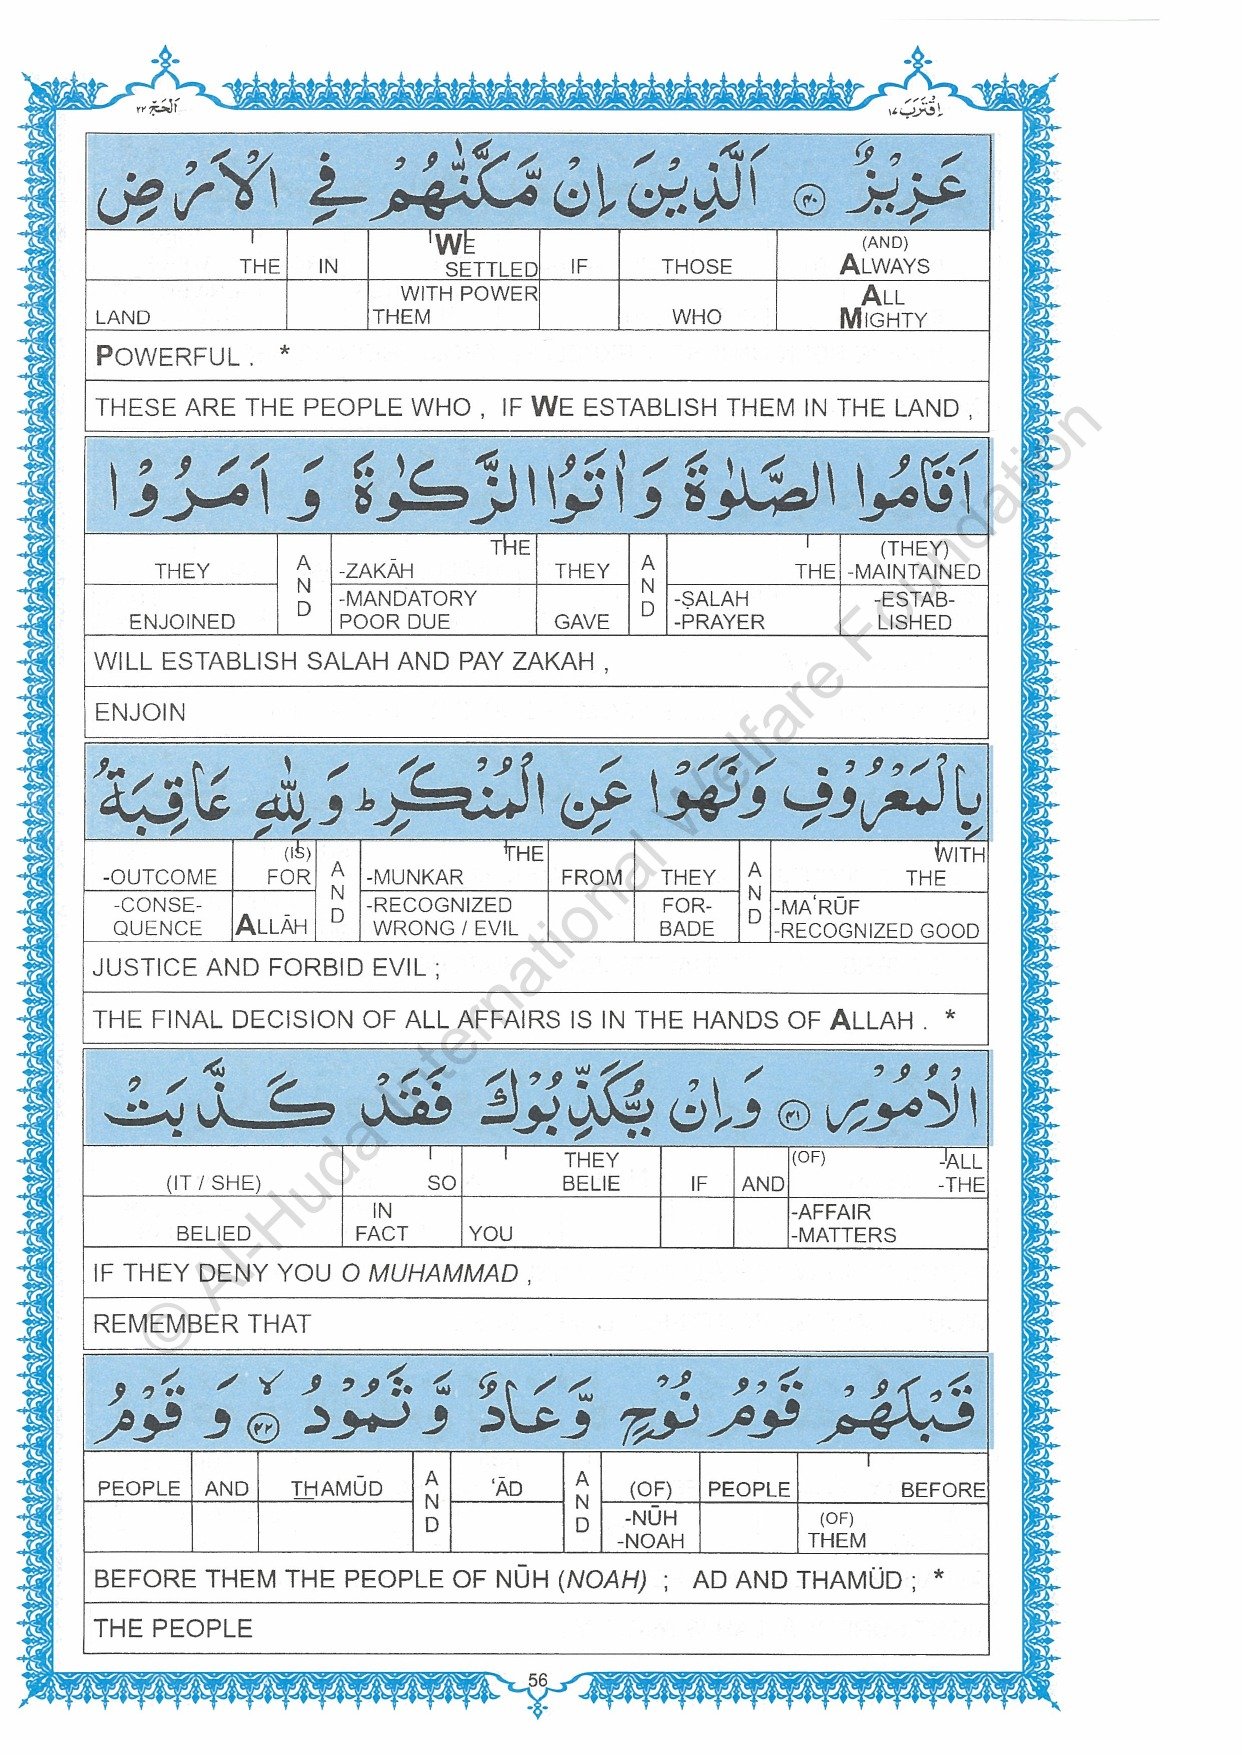 اَلْحَجّ ٢٢
اِقْتَرَبَ ١٧
عَزِيْزٌ ٤٠ اَلَّذِيْنَ اِنْ مَّكَّنّٰهُمْ فِي الْاَرْضِ
THE IN WE SETTLED IF THOSE (AND) ALWAYS
LAND WITH POWER THEM WHO ALL MIGHTY
POWERFUL . *
THESE ARE THE PEOPLE WHO , IF WE ESTABLISH THEM IN THE LAND ,
اَقَامُوا الصَّلٰوةَ وَ اٰتَوُا الزَّكٰوةَ وَ اَمَرُوْا
THEY AND THE -ZAKĀH THEY AND THE (THEY) -MAINTAINED
ENJOINED -MANDATORY POOR DUE GAVE -ṢALAH -PRAYER -ESTAB- LISHED
WILL ESTABLISH SALAH AND PAY ZAKAH ,
ENJOIN
بِالْمَعْرُوْفِ وَنَهَوْا عَنِ الْمُنْكَرِ ط وَلِلّٰهِ عَاقِبَةُ
-OUTCOME (IS) FOR AND THE -MUNKAR FROM THEY AND WITH THE
-CONSE- QUENCE ALLĀH -RECOGNIZED WRONG / EVIL FOR- BADE -MA‘RŪF -RECOGNIZED GOOD
JUSTICE AND FORBID EVIL ;
THE FINAL DECISION OF ALL AFFAIRS IS IN THE HANDS OF ALLAH . *
الْاُمُوْرِ ٤١ وَاِنْ يُّكَذِّبُوْكَ فَقَدْ كَذَّبَتْ
(IT / SHE) SO THEY BELIE IF AND (OF) -ALL -THE
BELIED IN FACT YOU -AFFAIR -MATTERS
IF THEY DENY YOU O MUHAMMAD ,
REMEMBER THAT
قَبْلَهُمْ قَوْمُ نُوْحٍ وَّعَادٌ وَّثَمُوْدُ لا ٤٢ وَ قَوْمُ
PEOPLE AND THAMŪD AND ‘ĀD AND (OF) PEOPLE BEFORE
-NŪH -NOAH (OF) THEM
BEFORE THEM THE PEOPLE OF NŪH (NOAH) ; AD AND THAMŪD ; *
THE PEOPLE
56
© Al-Huda International Welfare Foundation